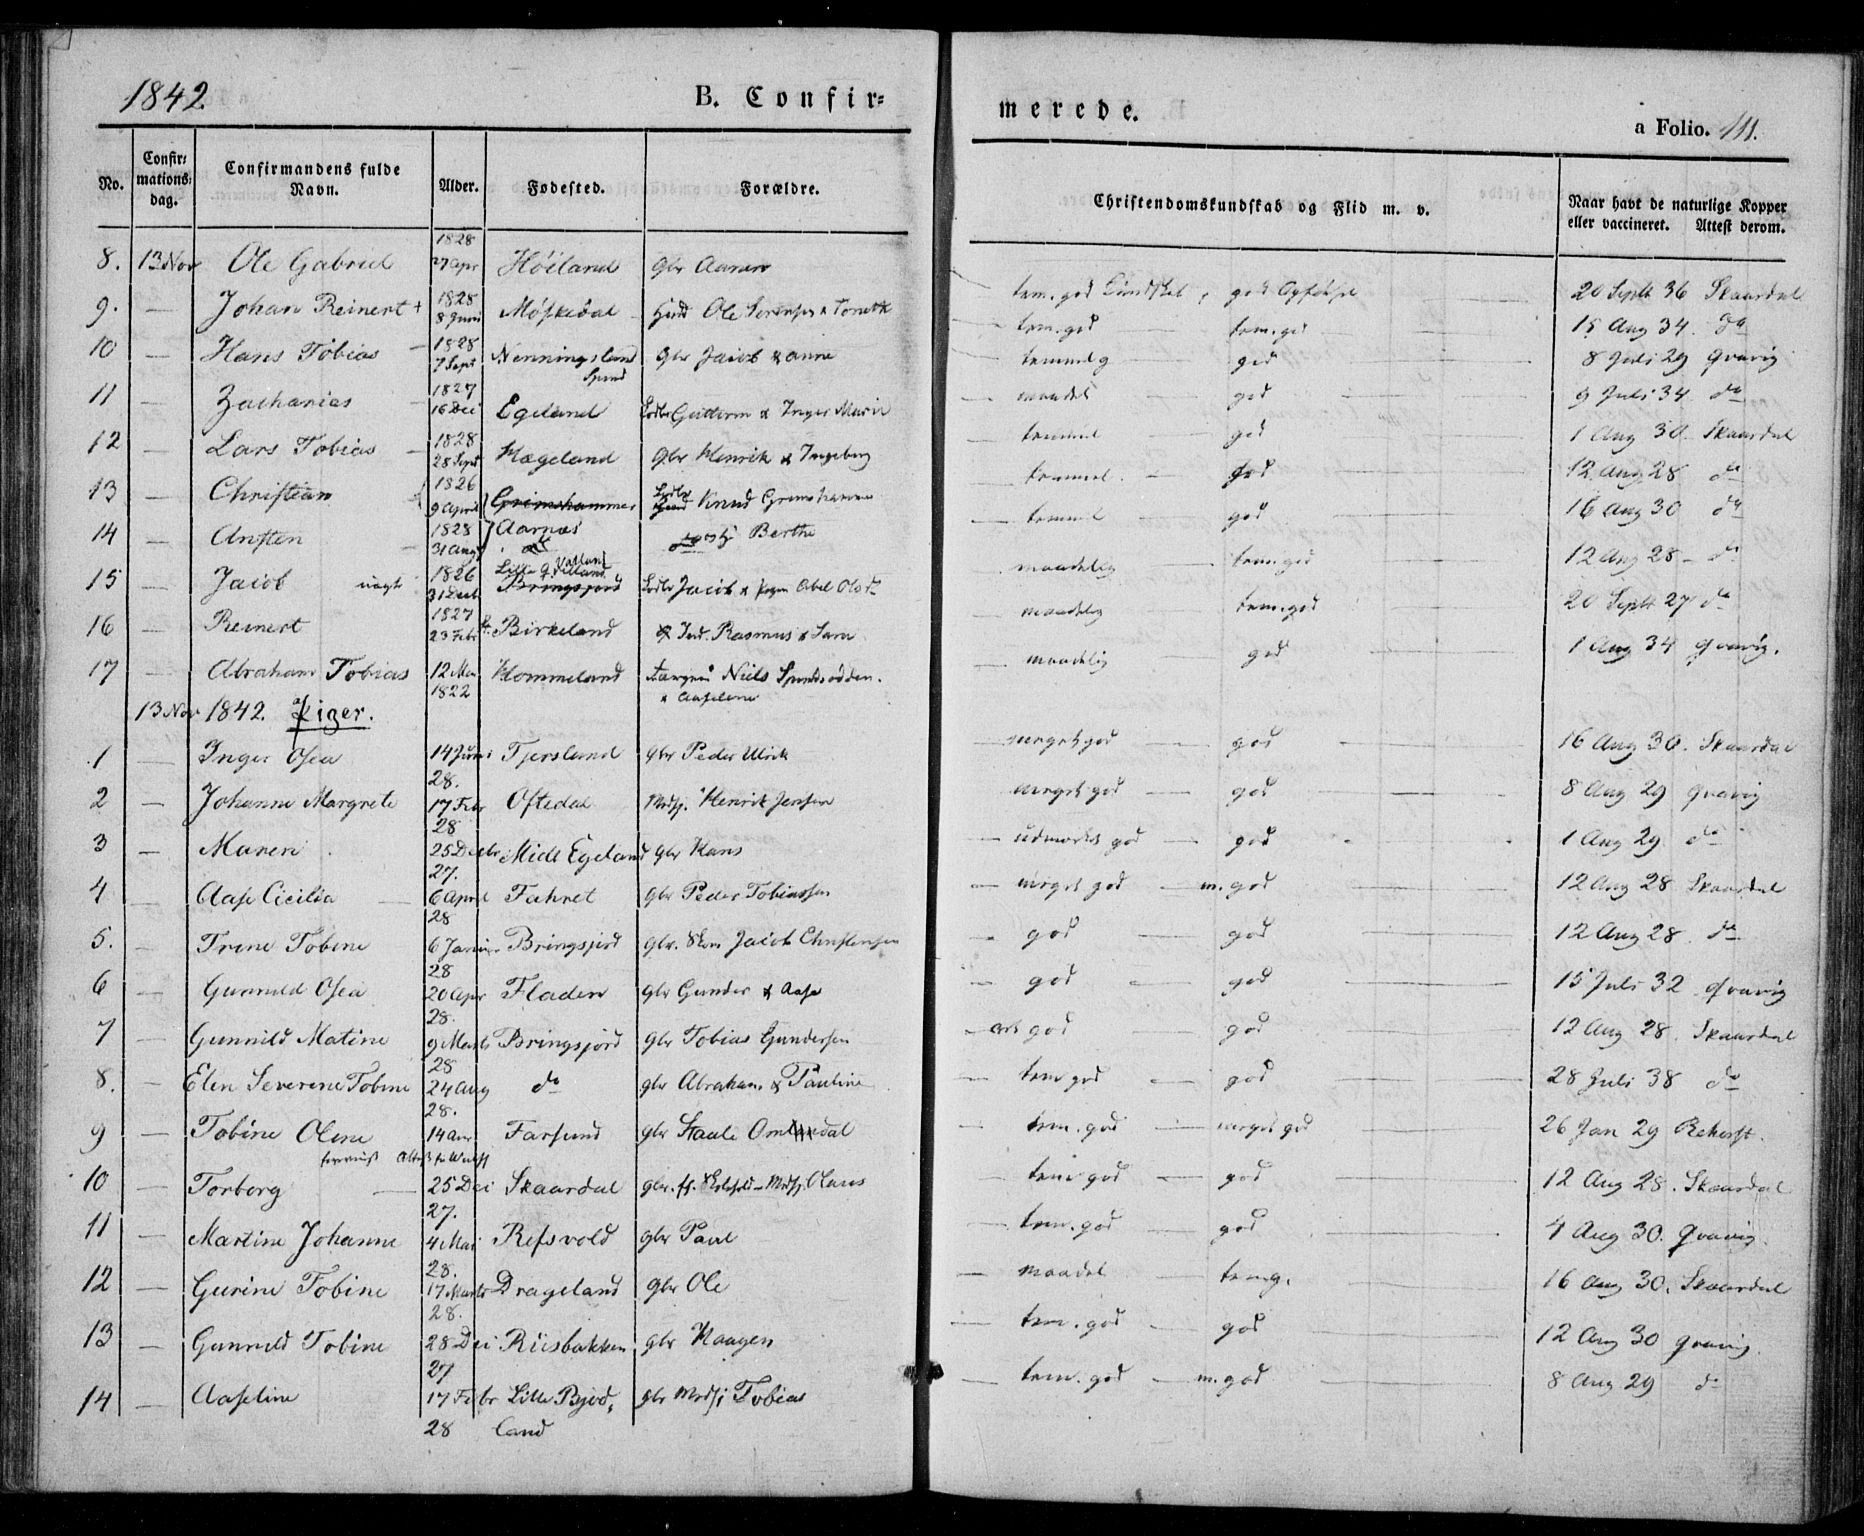 1842.
B. Confir-
merede.
a Folio. 111.
No.
Confir-
mations-
dag.
Confirmandens fulde
Navn.
Alder.
Fødested.
Forældre.
Christendomskundskab og Flid m. v.
Naar havt de naturlige Kopper
eller vaccineret. Attest derom.
8. 13 Nov Ole Gabriel 1828 27 Apr Höiland Gbr Aanen tem. god Kundskab, god Opførsel 20 Septb 36 Skaardal
9. — Johan Reinert + 1828 8 Juni Møskedal Ole Sørensen & tem. god tem. god 15 Aug 34. do
10 — Hans Tobias — 1828 7 Sept Nenningsland Gbr Jacob & Anne temmelig god 8 Juli 29 Qvavig
11 — Zacharias 1827 16 Dec Egeland Guttorm & Inger Marie maadel god 9 Juli 34 do
12 — Lars Tobias — 1828 28 Sept Hægeland Gbr Henrik & Ingeborg temmel god 1 Aug 30 Skaardal
13 — Christian 1826 9 April Grimshammer Knud Grimshammer temmel. god 12 Aug 28 do
14 — Ansten 1828 31 Aug Aarnæs Berthe temmel god 16 Aug 30 do
15 — Jacob uægte 1826 31 Decb Lille Bringsjord Jacob & Pigen Abel Olsdr maadelig tem. god 12 Aug 28 — do
16 — Reinert 1827 23 Febr Birkeland Rasmus & Sara maadelig tem. god 20 Septb 27 do
17 — Abraham Tobias 12 Mai 1822 Hommeland Niels & Aaselene maadelig god 1 Aug 34 Qvavig.
13 Nov 1842. Piger.
1 — Inger Osea 14 Juni 28. Tjersland gbr Peder Ulrik meget god god 16 Aug 30. Skaardal
2 — Johanne Margrete 17 Febr 28 Oftedal Mrdsj. Henrik Jensen meget god god 8 Aug 29 Qvavig
3 — Maren 25 Decbr 27. Midt Egeland gbr Hans udmærket god god 1 Aug 29 do
4 — Aase Cicilia 6 April 28 Fahret gbr Peder Tobiassen meget god m. god 12 Aug 28 Skaardal
5. — Trine Tobine 6 Januar 28 Bringsjord gbr. Jacob Christensen god god 12 Aug 28. do
6 — Gunnild Osea 20 Apr 28. Fladen gbr Gunder & Aase god god 15 Juli 32 Qvavig
7 — Gunnild Matine 9 Marts 28 Bringsjord gbr Tobias Gundersen god god 12 Aug 28. Skaardal
8. — Elen Severene Tobine 24 Aug 28. do gbr Abraham & Pauline tem god god 28 Juli 38 do
9 — Tobine Olene 14 Farsund gbr Staale Omlandal tem. god meget god 26 Jan 29
10 — Torborg 25 Dec 27. Skaardal gbr. Mrdsj. Olaus tem god god 12 Aug 28. Skaardal
11 — Martine Johanne 4 Mai 28. Refsvold gbr Paul tem. god god 4 Aug 30. Qvavig
12 — Gurine Tobine 17 Marts 28. Drageland gbr Ole maadel tem g. 16 Aug 30. Skaardal
13 — Gunnild Tobine 28 Dec 27 Riisbakken gbr Haagen tem. god god 12 Aug 30 Qvavig.
14 — Aaseline 17 Febr 28 Lille Bjod, land gbr Mrdsj Tobias tem. god m. god 8 Aug 29 do